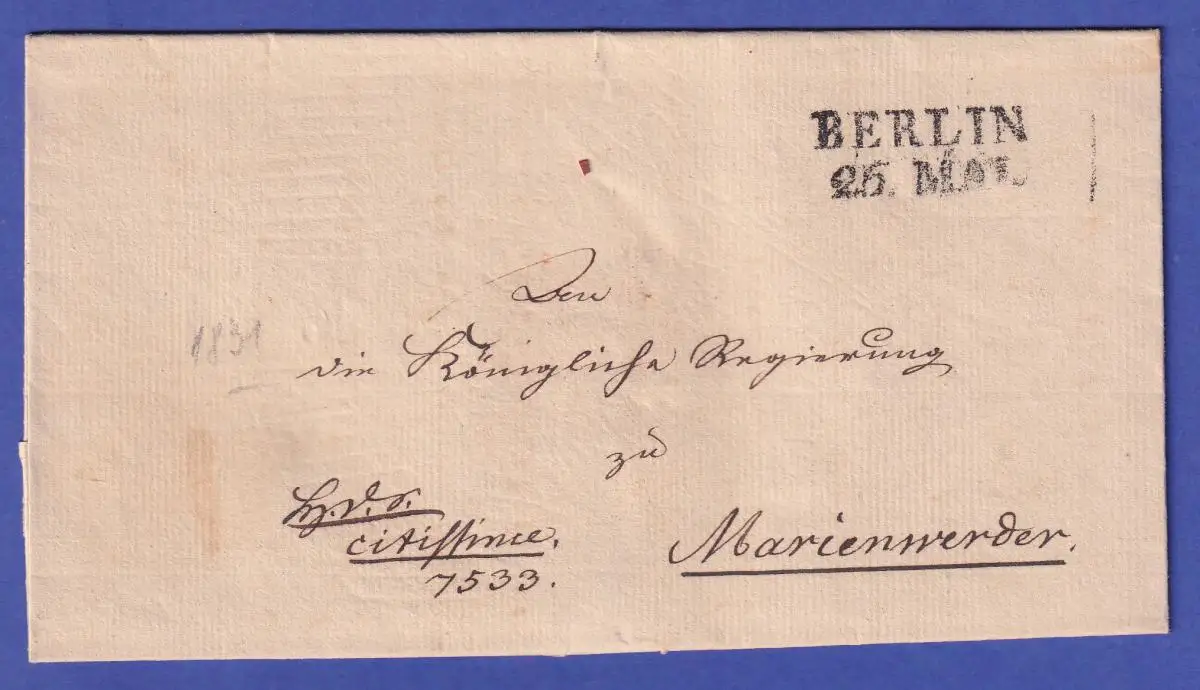 BERLIN
25. MAI.
1831
die Königliche Regierung
zu
citissime.
Marienwerder.
7533.